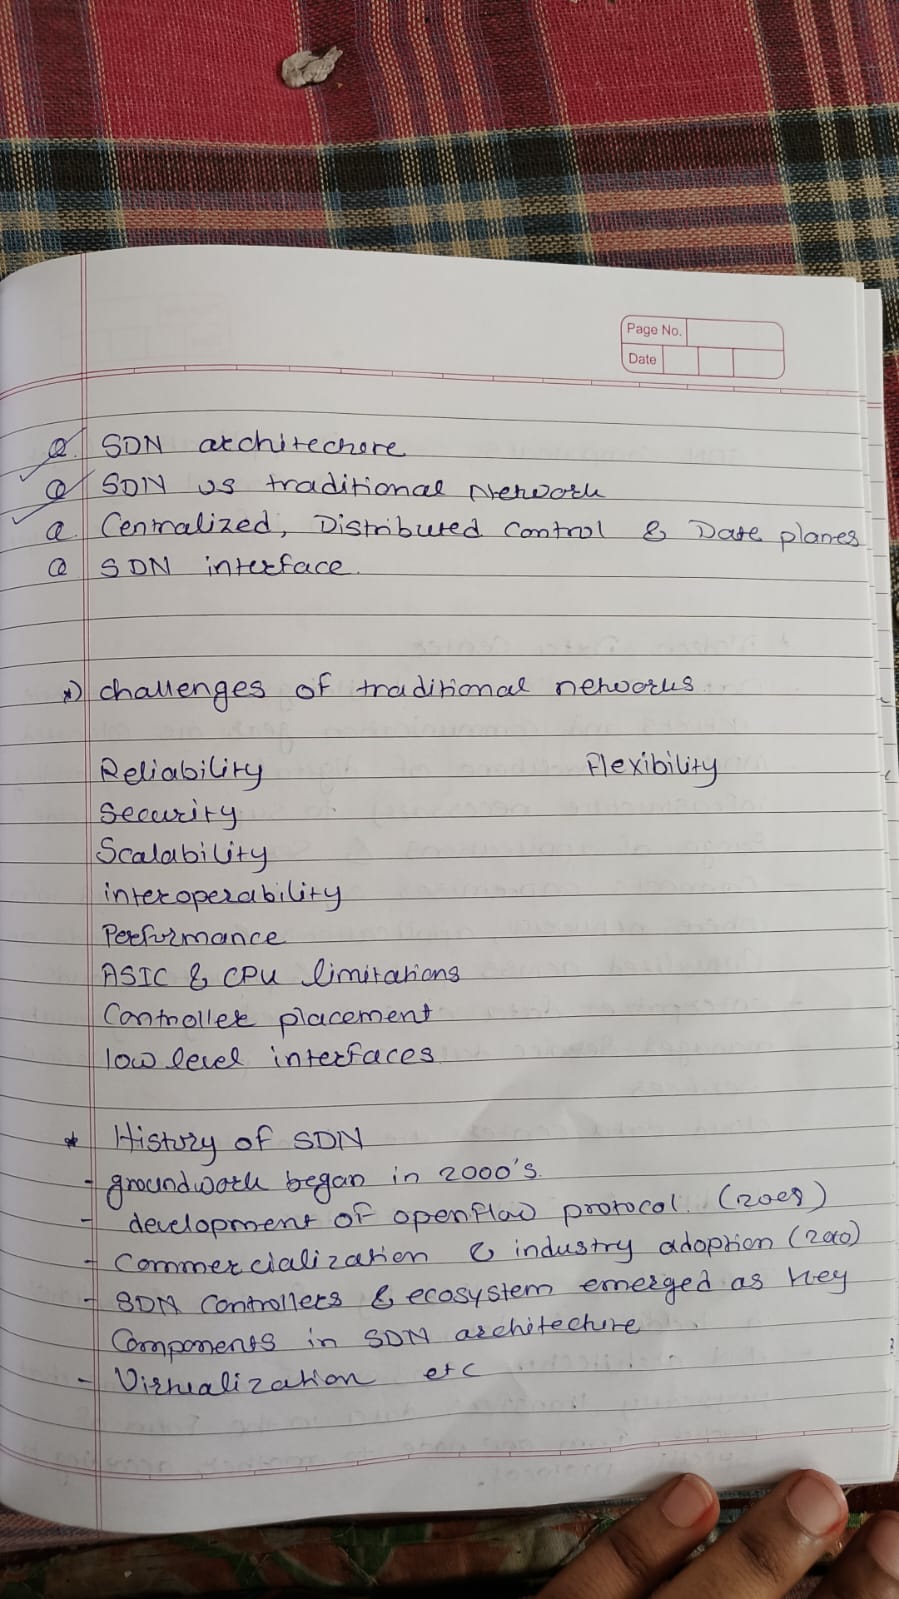 Page No.
Date
Q. SDN architechore
Q SDN vs traditional Network
Q Centralized, Distributed Control & Date planes
Q SDN interface.
*) challenges of traditional networks
Reliability Flexibility
Security
Scalability
interoperability
Performance
ASIC & CPU limitations
Controller placement
low level interfaces
* History of SDN
- groundwork began in 2000's.
- development of openflow protocol. (2008)
- Commercialization & industry adoption (2010)
- SDN Controllers & ecosystem emerged as key
Components in SDN architechure
- Virtualization etc